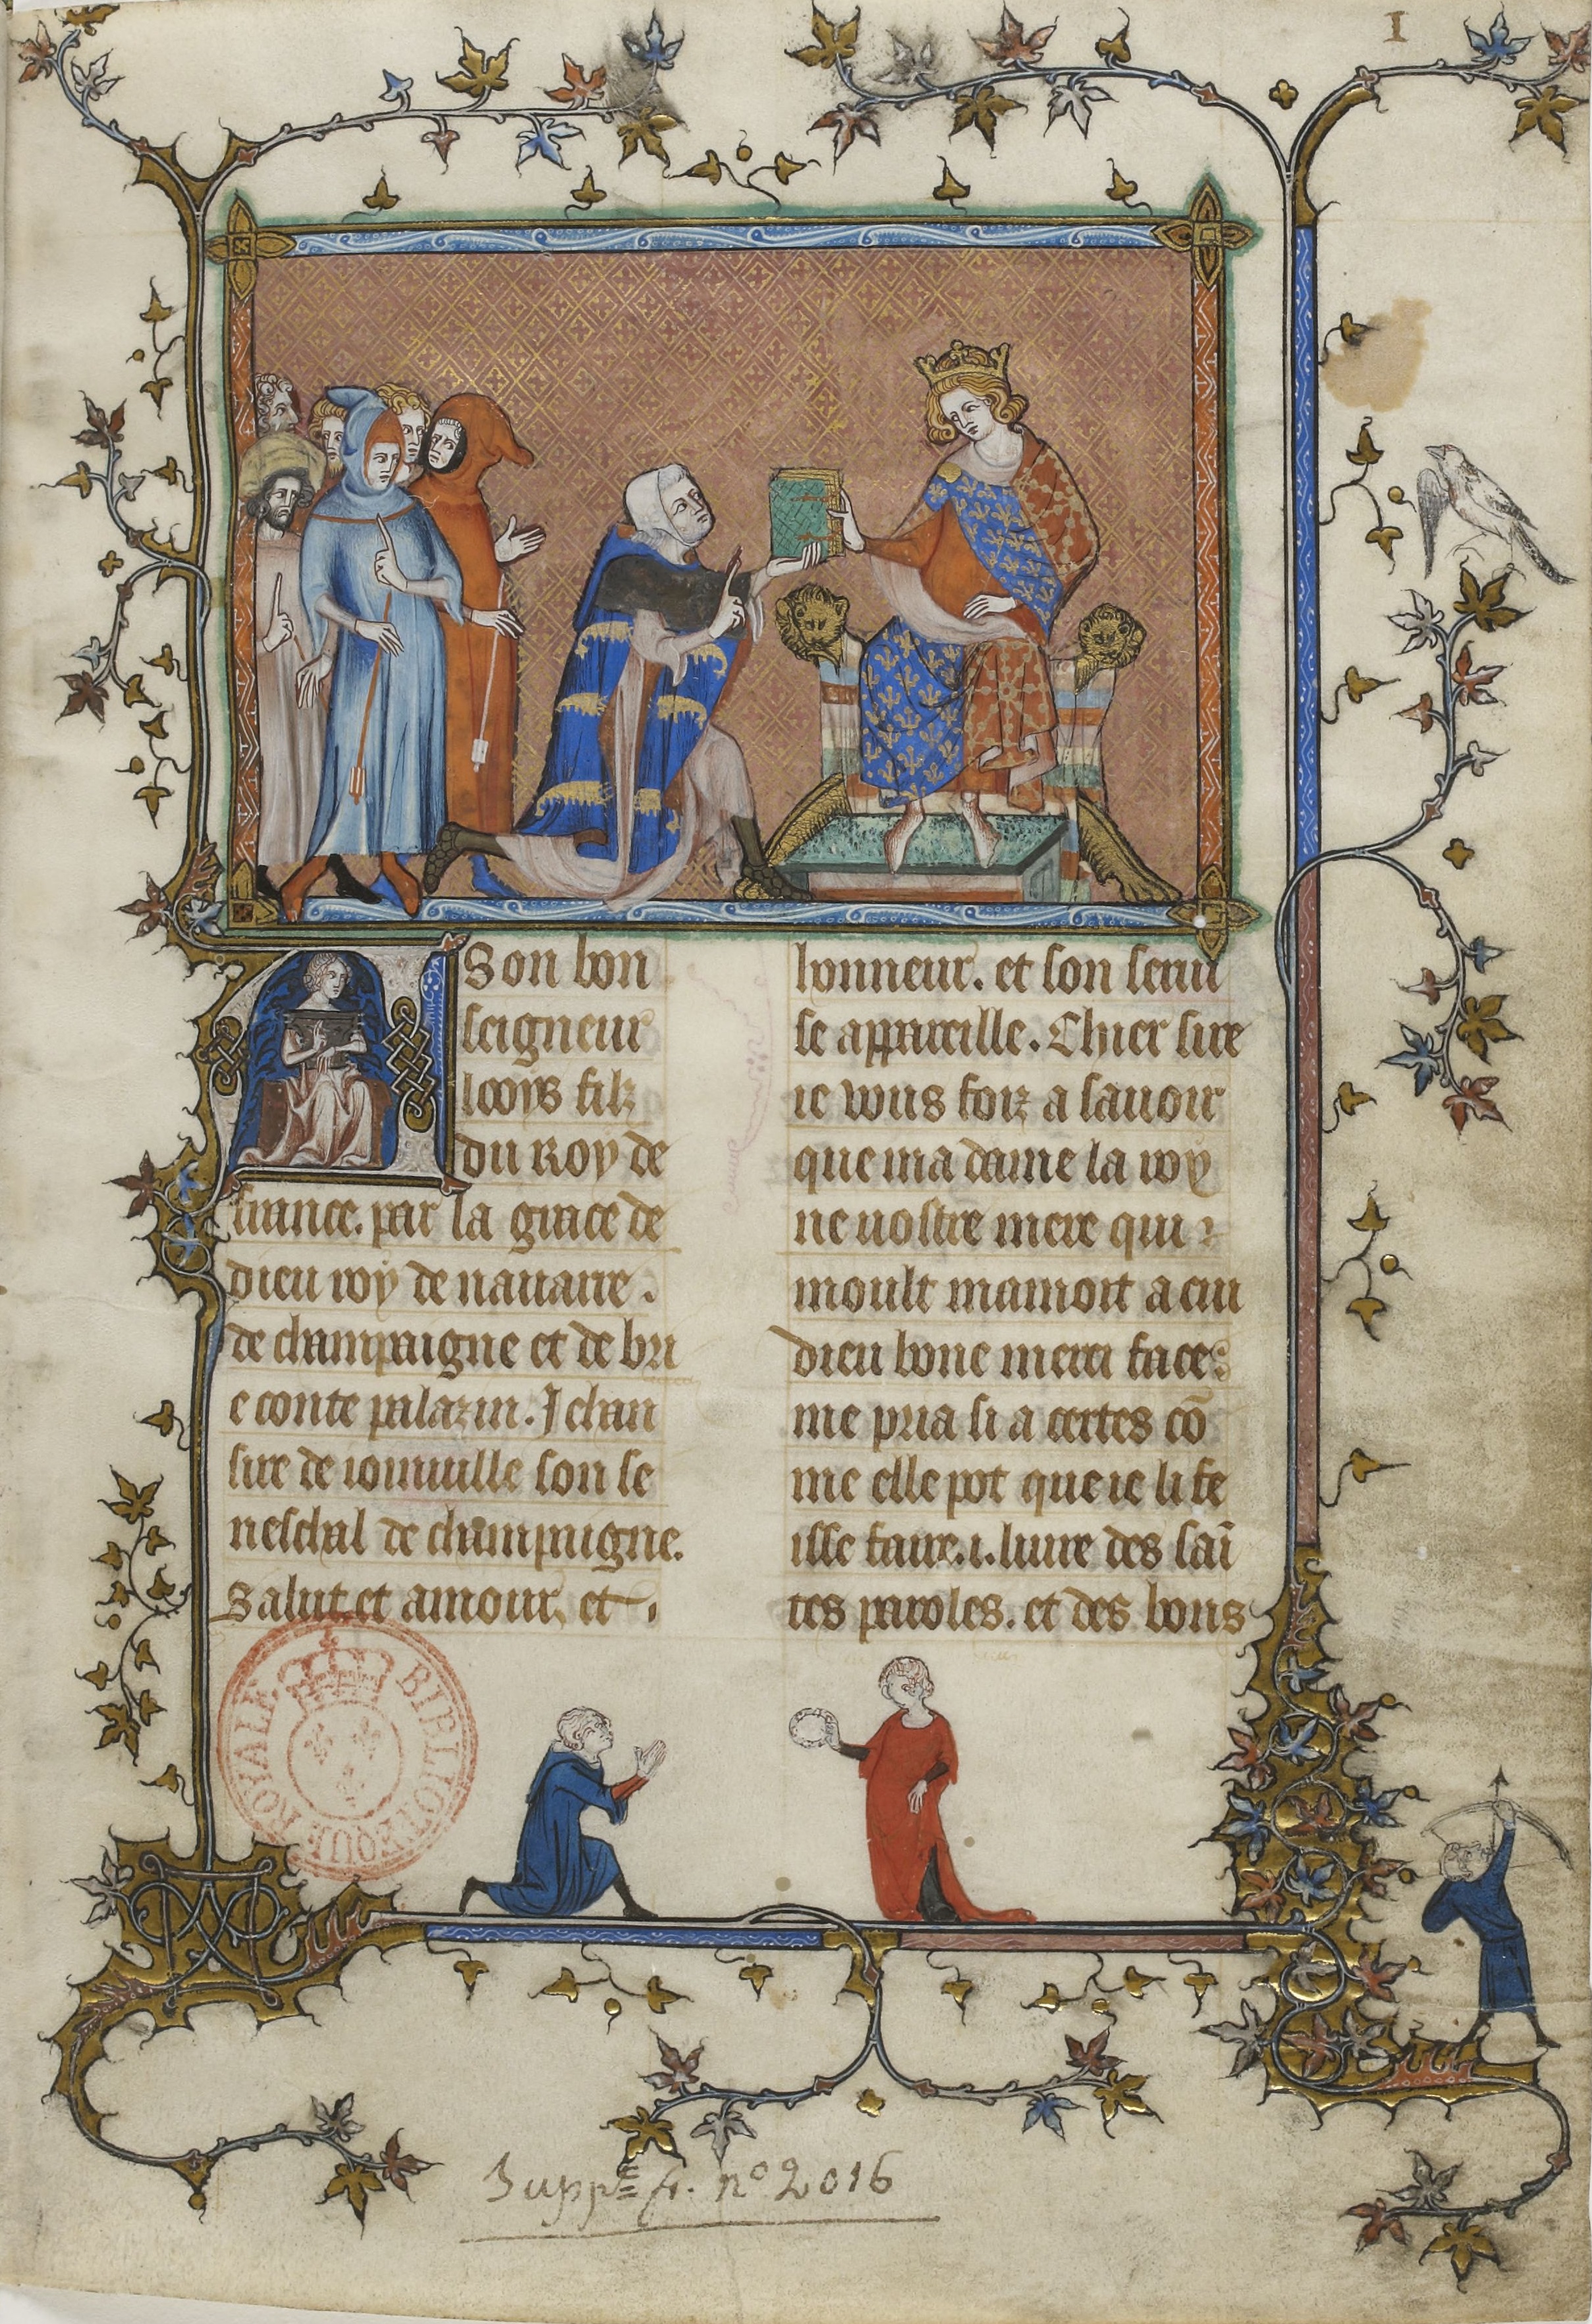 I
A Son bon
seigneur
looys filz
du Roy de
france. par la grace de
dieu roy de nauarre.
de champaigne et de bri
e conte palazin. Jehan
sire de ioinuille son se
neschal de champaigne.
Salut et amour, et
honneur. et son serui
se appareille. Chier sire
ie vous foiz a sauoir
que ma dame la roy
ne uostre mere qui
moult mamoit a cui
dieu bone merci face
me pria si a certes cō
me elle pot que ie li fe
isse faire .i. liure des sai
tes paroles. et des bons
BIBLIOTEQUE ROYALE
Suppᵗ fr. nº 2016